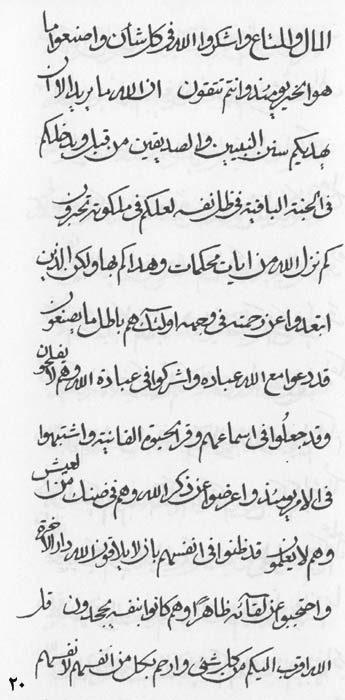 المال والمتاع واشكروا الله فى كل شأن واصنعوا ما
هو الخير يومئذ وانتم تتقون ان الله ما يريد الا ان
يهديكم سنن النبيين والصديقين من قبل ويدخلكم
فى الجنة الباقية فى ظل نفسه لعلكم فى ملكوته تحبرون
كم نزل الله من ايات محكمات وهداكم بها ولكن الذين
ابتعدوا عن رحمته فى وجهه اولئك هم باطل ما يصنعون
قد دعوا مع الله عباده واشركوا فى عبادة الله وهم لا يفلحون
وقد جعلوا فى اسماعهم وقر الحيوة الفانية واشتبهوا
فى الامر يومئذ واعرضوا عن ذكر الله وهم فى ضنك من العيش
وهم لا يعلمون قد ظنوا فى انفسهم بان لا يلاقوا الله دار الاخرة
واحتجبوا عن لقائه ظاهرا وهم كانوا بنفسه يجحدون قل
الله اقرب اليكم من كل شىء وارحم بكل من انفسهم لانفسهم
٢٠